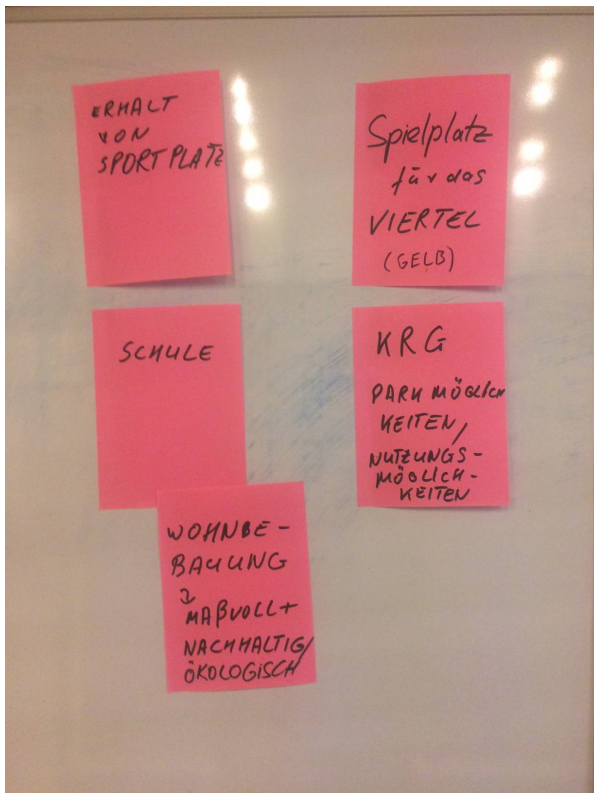 ERHALT
VON
SPORTPLATZ
Spielplatz
für das
VIERTEL
(GELB)
SCHULE
KRG
PARKMÖGLICH
KEITEN,
NUTZUNGS-
MÖGLICH-
KEITEN
WOHNBE-
BAUUNG
MAßVOLL+
NACHHALTIG/
ÖKOLOGISCH